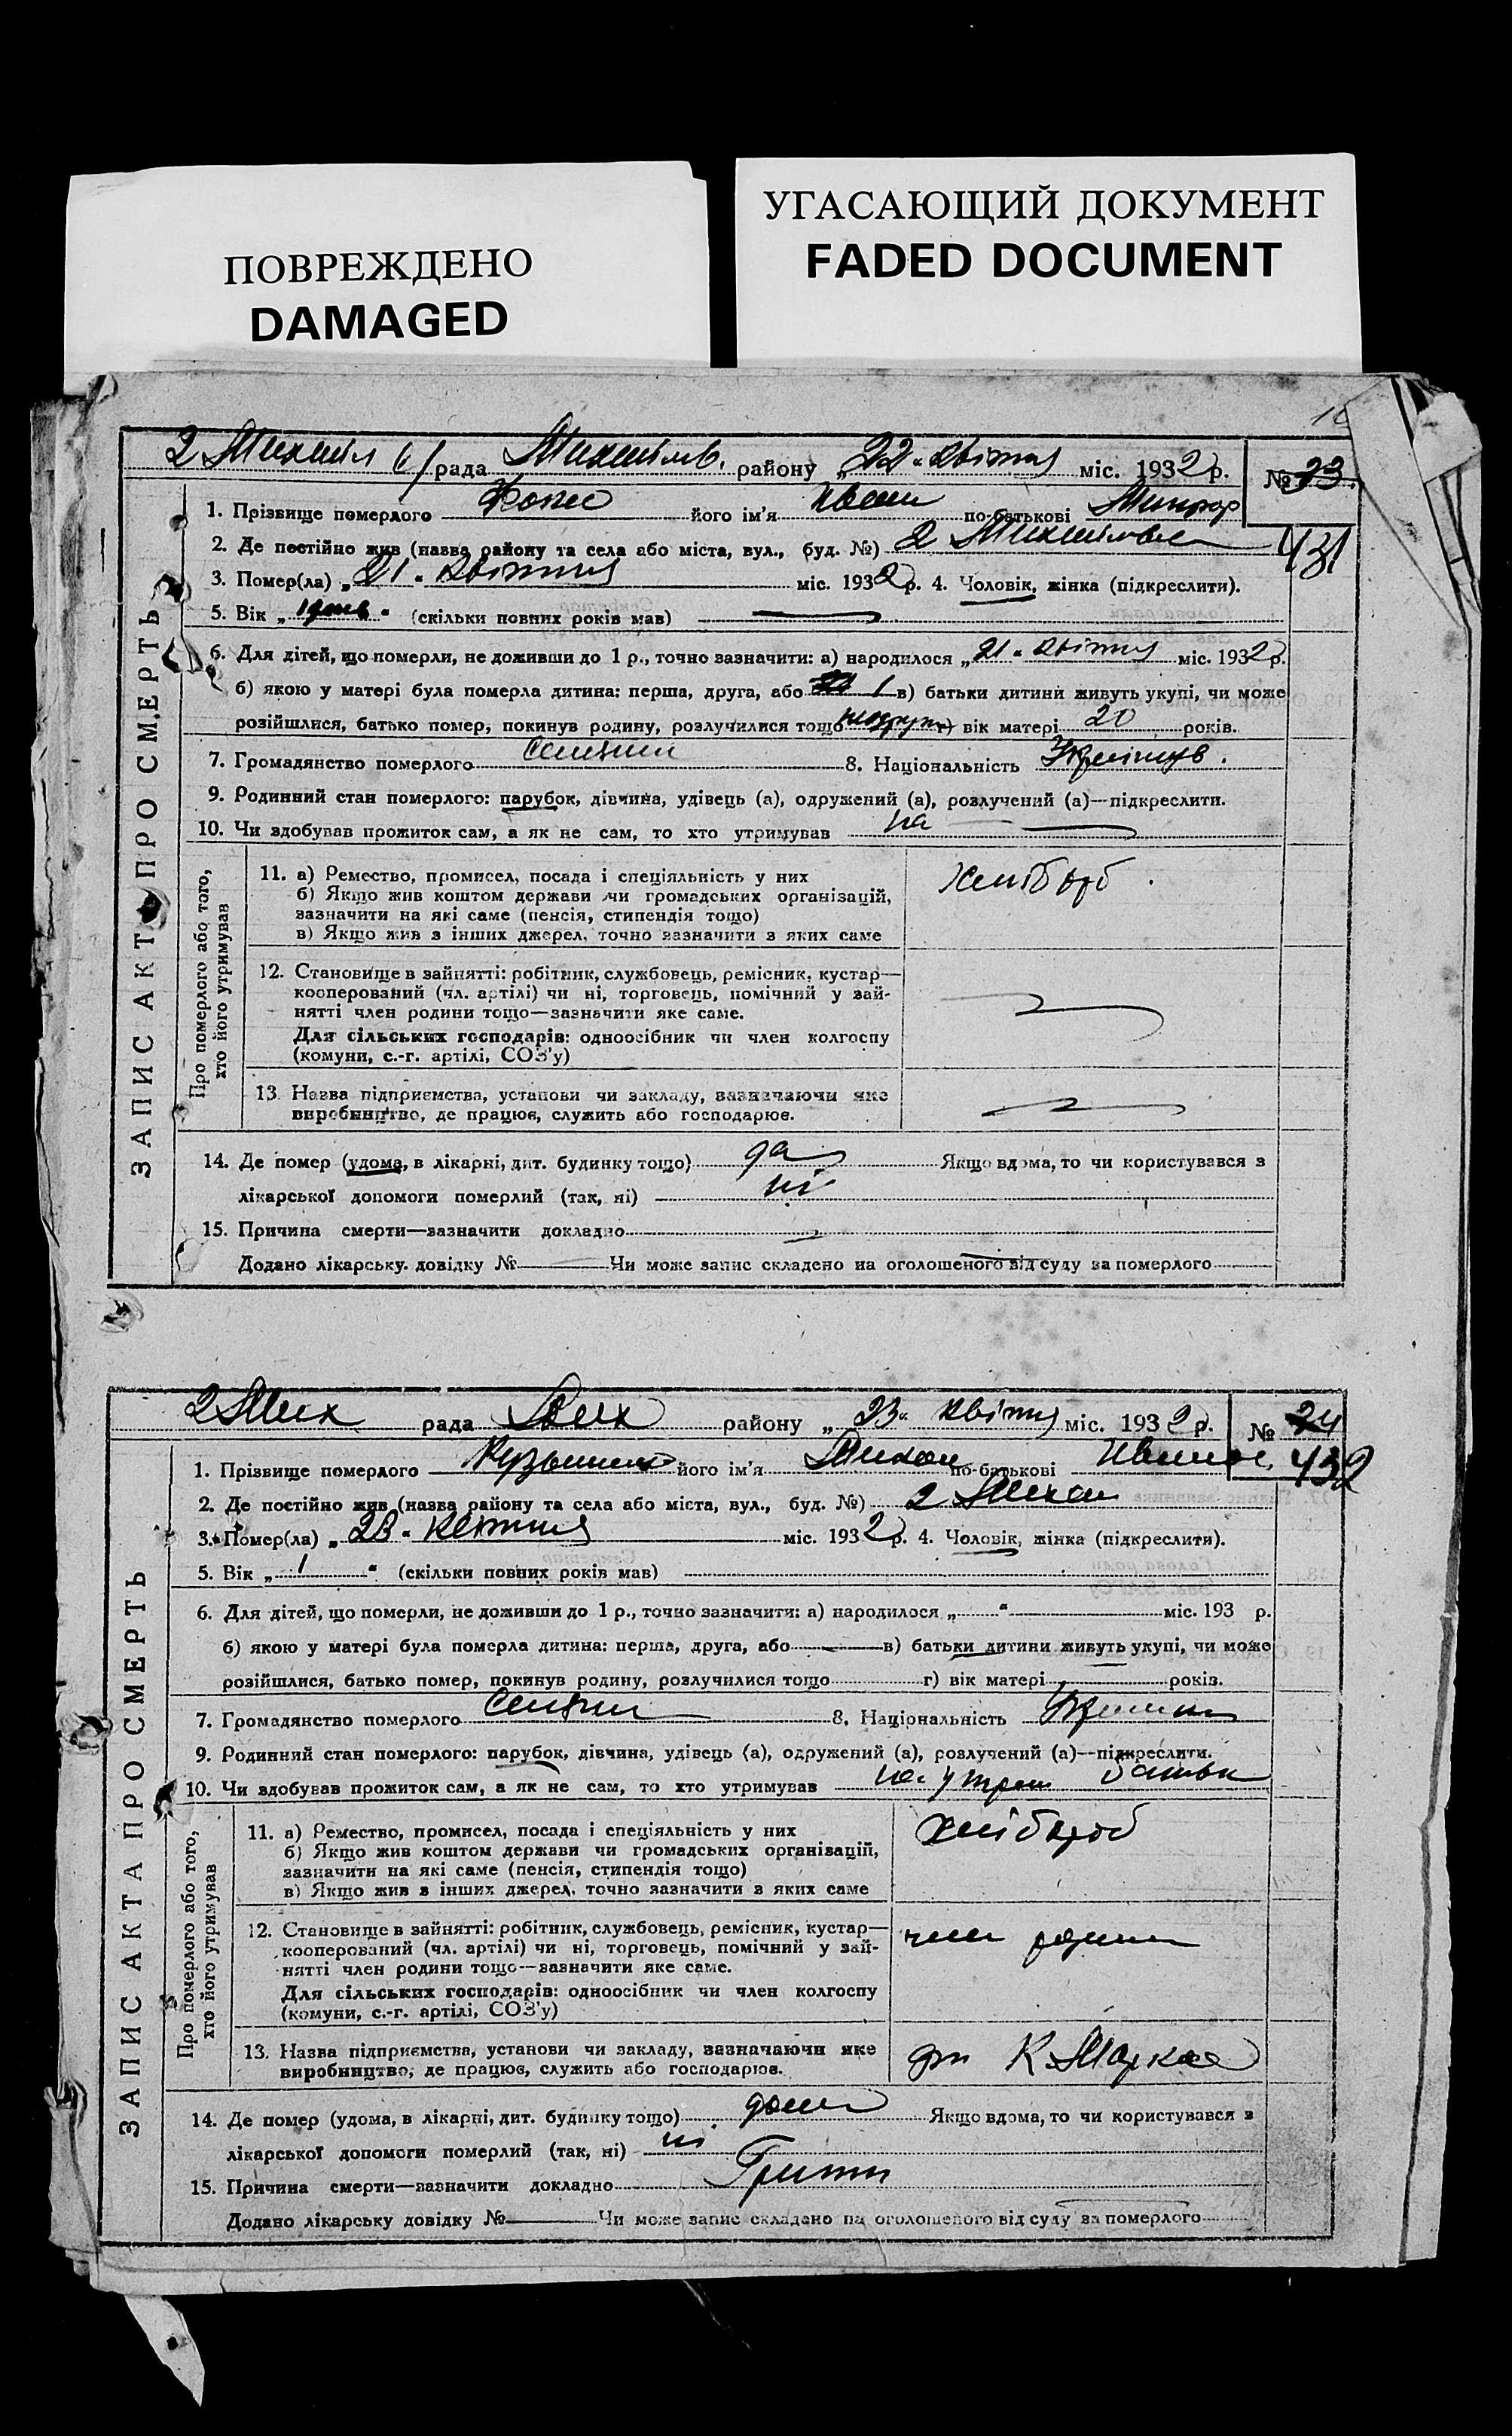 ПОВРЕЖДЕНО
DAMAGED
УГАСАЮЩИЙ ДОКУМЕНТ
FADED DOCUMENT
ЗАПИС АКТА ПРО СМЕРТЬ
2 Михайл с/рада Михайлів. району „22" квітня міс. 1932 р. № 23.
431
1. Прізвище померлого його ім'я Иван по-батькові
2. Де постійно жив (назва району та села або міста, вул., буд. №) 2 Михайлівка
3. Помер(ла) „21" квітня міс. 1932 р. 4. Чоловік, жінка (підкреслити).
5. Вік „1 день" (скільки повних років мав)
6. Для дітей, що померли, не доживши до 1 р., точно зазначити: а) народилося „21" квітня міс. 1932 р.
б) якою у матері була померла дитина: перша, друга, або 1 в) батьки дитини живуть укупі, чи може
розійшлися, батько помер, покинув родину, розлучилися тощо г) вік матері 20 років.
7. Громадянство померлого 8. Національність Українців.
9. Родинний стан померлого: парубок, дівчина, удівець (а), одружений (а), розлучений (а)—підкреслити.
10. Чи здобував прожиток сам, а як не сам, то хто утримував на
Про померлого або того, хто його утримував
11. а) Ремество, промисел, посада і спеціяльність у них
б) Якщо жив коштом держави чи громадських організацій,
зазначити на які саме (пенсія, стипендія тощо)
в) Якщо жив з інших джерел, точно зазначити з яких саме
Хлібороб.
12. Становище в зайнятті: робітник, службовець, ремісник, кустар—
кооперований (чл. артілі) чи ні, торговець, помічний у зай-
нятті член родини тощо—зазначити яке саме.
Для сільських господарів: одноосібник чи член колгоспу
(комуни, с.-г. артілі, СОЗ'у)
13. Назва підприємства, установи чи закладу, зазначаючи яке
виробництво, де працює, служить або господарює.
14. Де помер (удома, в лікарні, дит. будинку тощо) да Якщо вдома, то чи користувався з
лікарської допомоги померлий (так, ні) ні
15. Причина смерти—зазначити докладно
Додано лікарську довідку № Чи може запис складено на оголошеного від суду за померлого
ЗАПИС АКТА ПРО СМЕРТЬ
2 Мих рада Мих району „23" квітня міс. 1932 р. № 24
432
1. Прізвище померлого його ім'я Микол по-батькові Иванов.
2. Де постійно жив (назва району та села або міста, вул., буд. №) 2 Михай
3. Помер(ла) „23" квітня міс. 1932 р. 4. Чоловік, жінка (підкреслити).
5. Вік „1" (скільки повних років мав)
6. Для дітей, що померли, не доживши до 1 р., точно зазначити: а) народилося „ " міс. 193 р.
б) якою у матері була померла дитина: перша, друга, або в) батьки дитини живуть укупі, чи може
розійшлися, батько помер, покинув родину, розлучилися тощо г) вік матері років.
7. Громадянство померлого 8. Національність
9. Родинний стан померлого: парубок, дівчина, удівець (а), одружений (а), розлучений (а)—підкреслити.
10. Чи здобував прожиток сам, а як не сам, то хто утримував на утрим батьки
Про померлого або того, хто його утримував
11. а) Ремество, промисел, посада і спеціяльність у них
б) Якщо жив коштом держави чи громадських організацій,
зазначити на які саме (пенсія, стипендія тощо)
в) Якщо жив з інших джерел, точно зазначити з яких саме
Хлібороб
12. Становище в зайнятті: робітник, службовець, ремісник, кустар—
кооперований (чл. артілі) чи ні, торговець, помічний у зай-
нятті член родини тощо—зазначити яке саме.
Для сільських господарів: одноосібник чи член колгоспу
(комуни, с.-г. артілі, СОЗ'у)
член родини
13. Назва підприємства, установи чи закладу, зазначаючи яке
виробництво, де працює, служить або господарює.
К. Маркса
14. Де помер (удома, в лікарні, дит. будинку тощо) дома Якщо вдома, то чи користувався з
лікарської допомоги померлий (так, ні) ні
15. Причина смерти—зазначити докладно Грипп
Додано лікарську довідку № Чи може запис складено на оголошеного від суду за померлого